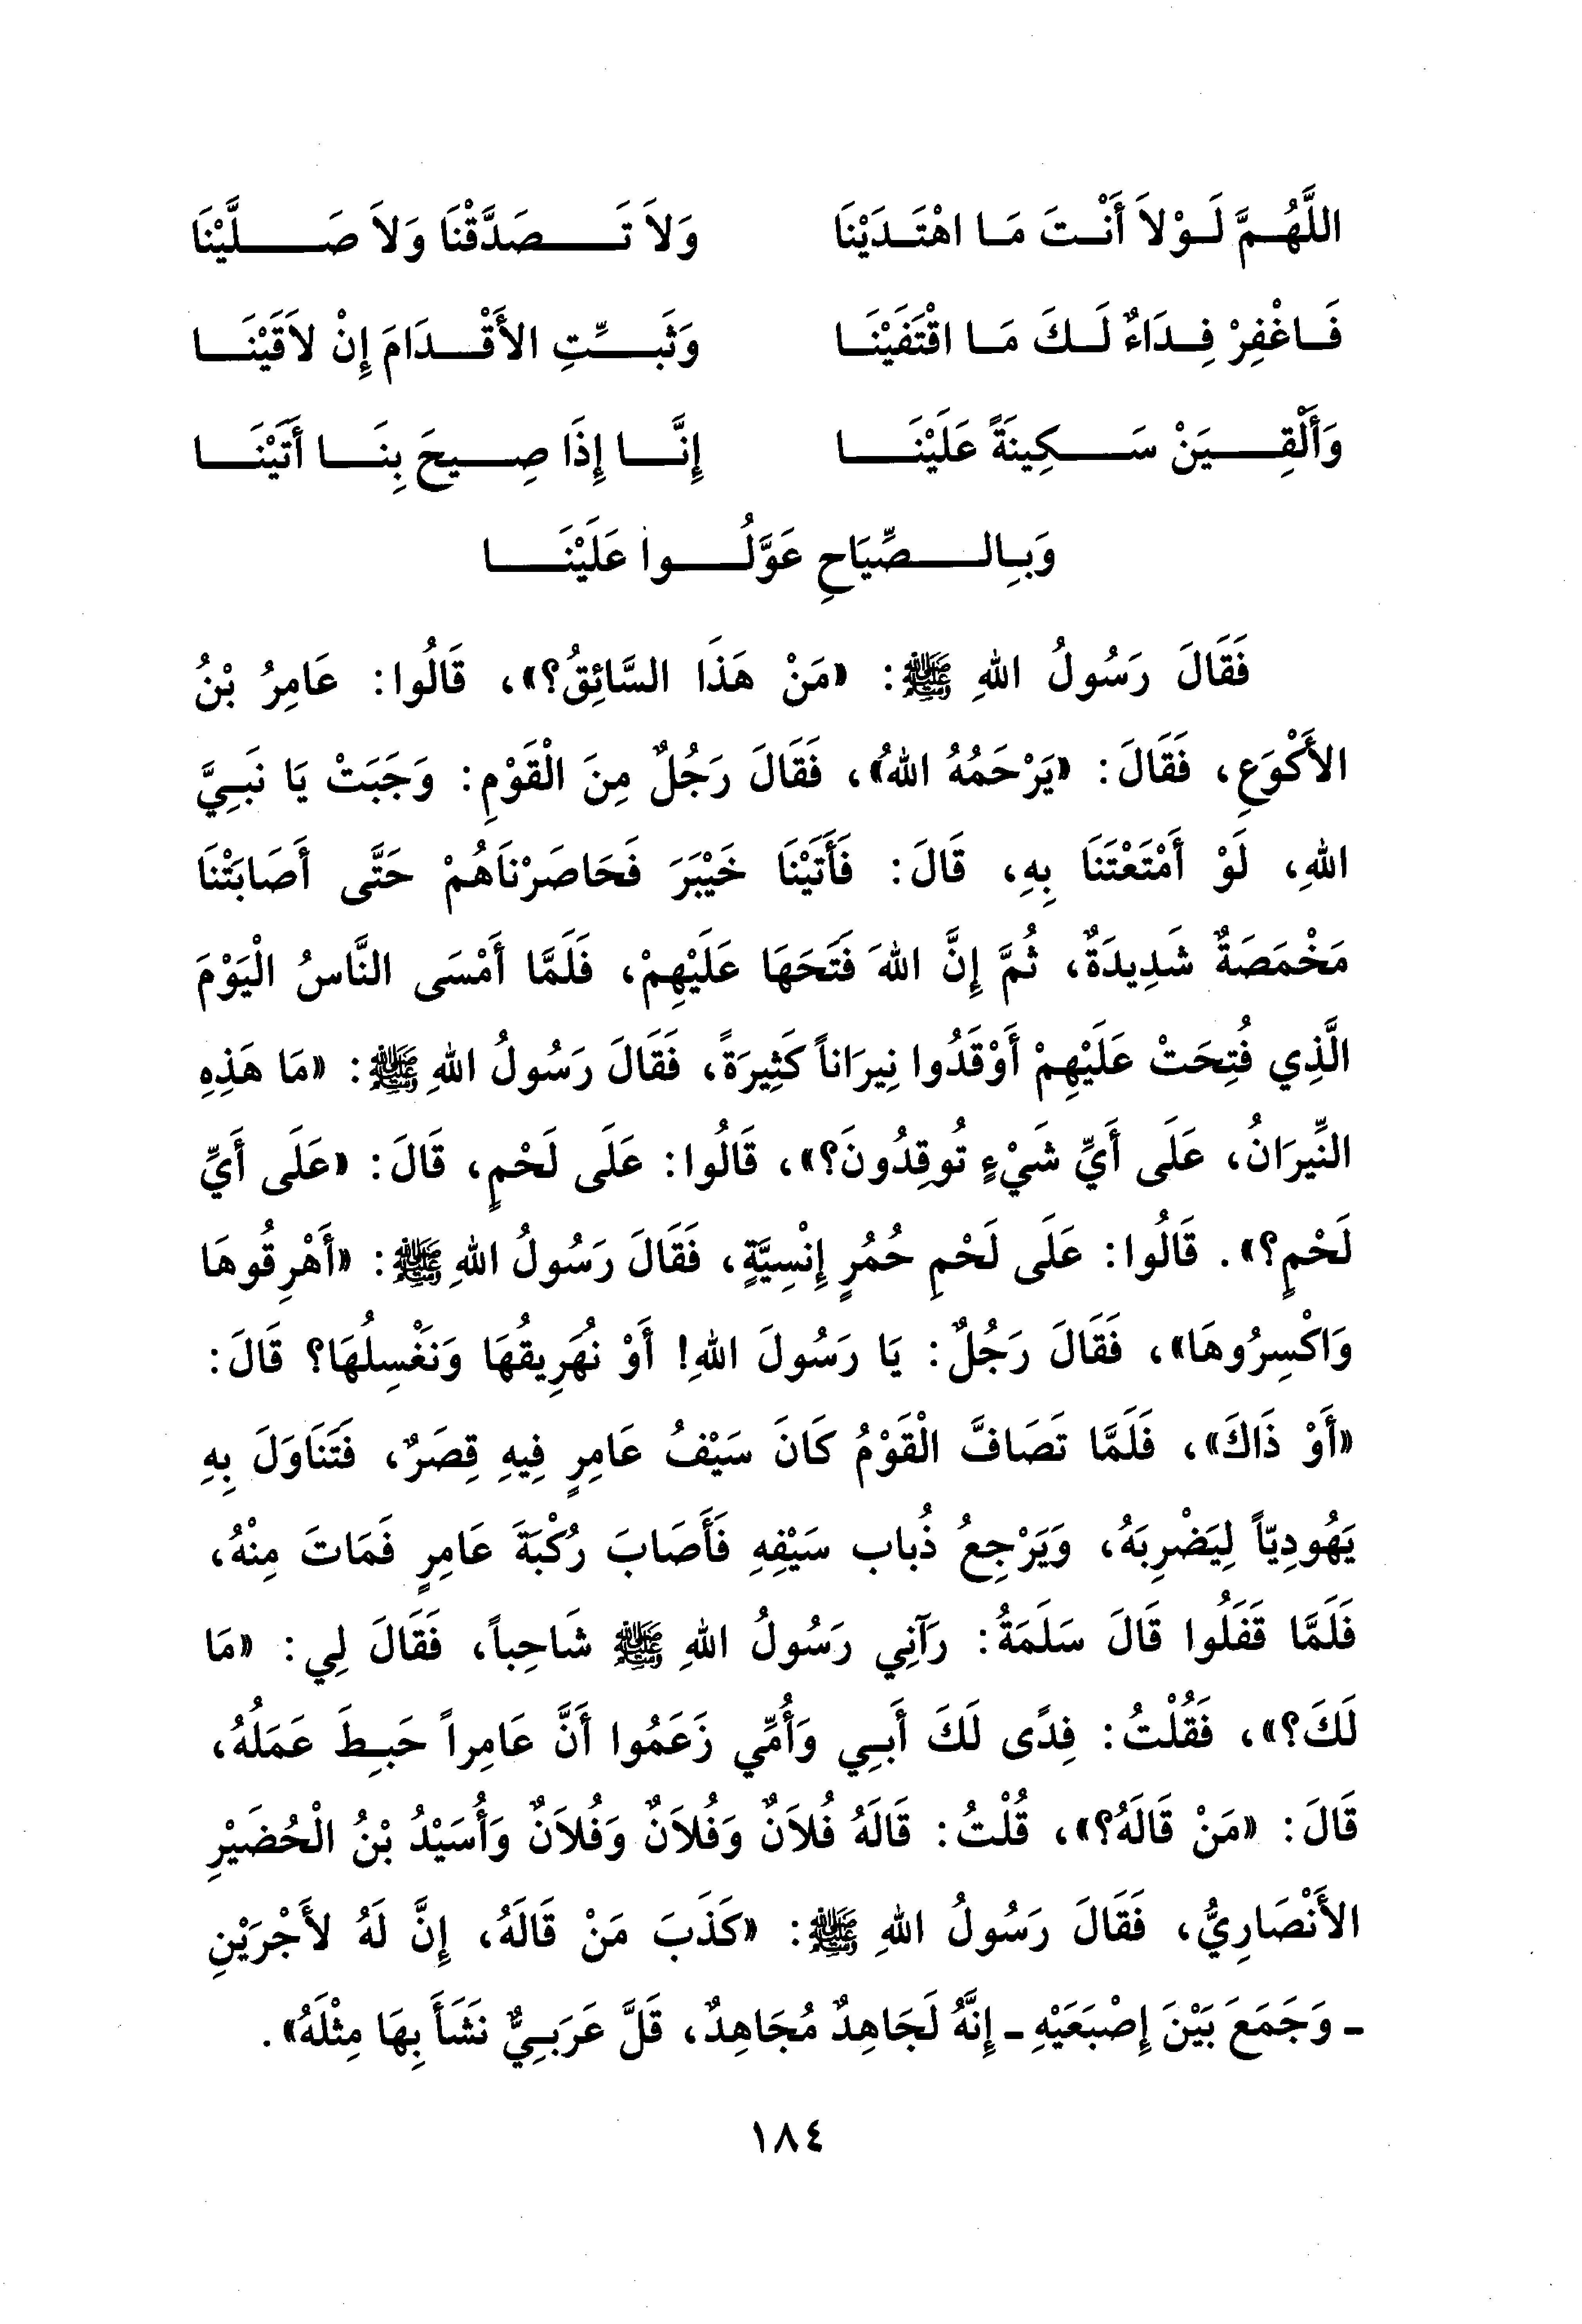 اللَّهُمَّ لَوْلاَ أَنْتَ مَا اهْتَدَيْنَا وَلاَ تَصَدَّقْنَا وَلاَ صَلَّيْنَا
فَاغْفِرْ فِدَاءٌ لَكَ مَا اقْتَفَيْنَا وَثَبِّتِ الأَقْدَامَ إِنْ لاَقَيْنَا
وَأَلْقِيَنْ سَكِينَةً عَلَيْنَا إِنَّا إِذَا صِيحَ بِنَا أَتَيْنَا
وَبِالصِّيَاحِ عَوَّلُوا عَلَيْنَا
فَقَالَ رَسُولُ اللهِ ﷺ: «مَنْ هَذَا السَّائِقُ؟»، قَالُوا: عَامِرُ بْنُ
الأَكْوَعِ، فَقَالَ: «يَرْحَمُهُ اللهُ»، فَقَالَ رَجُلٌ مِنَ الْقَوْمِ: وَجَبَتْ يَا نَبِيَّ
اللهِ، لَوْ أَمْتَعْتَنَا بِهِ، قَالَ: فَأَتَيْنَا خَيْبَرَ فَحَاصَرْنَاهُمْ حَتَّى أَصَابَتْنَا
مَخْمَصَةٌ شَدِيدَةٌ، ثُمَّ إِنَّ اللهَ فَتَحَهَا عَلَيْهِمْ، فَلَمَّا أَمْسَى النَّاسُ الْيَوْمَ
الَّذِي فُتِحَتْ عَلَيْهِمْ أَوْقَدُوا نِيرَاناً كَثِيرَةً، فَقَالَ رَسُولُ اللهِ ﷺ: «مَا هَذِهِ
النِّيرَانُ، عَلَى أَيِّ شَيْءٍ تُوقِدُونَ؟»، قَالُوا: عَلَى لَحْمٍ، قَالَ: «عَلَى أَيِّ
لَحْمٍ؟». قَالُوا: عَلَى لَحْمِ حُمُرٍ إِنْسِيَّةٍ، فَقَالَ رَسُولُ اللهِ ﷺ: «أَهْرِقُوهَا
وَاكْسِرُوهَا»، فَقَالَ رَجُلٌ: يَا رَسُولَ اللهِ! أَوْ نُهَرِيقُهَا وَنَغْسِلُهَا؟ قَالَ:
«أَوْ ذَاكَ»، فَلَمَّا تَصَافَّ الْقَوْمُ كَانَ سَيْفُ عَامِرٍ فِيهِ قِصَرٌ، فَتَنَاوَلَ بِهِ
يَهُودِيّاً لِيَضْرِبَهُ، وَيَرْجِعُ ذُباب سَيْفِهِ فَأَصَابَ رُكْبَةَ عَامِرٍ فَمَاتَ مِنْهُ،
فَلَمَّا قَفَلُوا قَالَ سَلَمَةُ: رَآنِي رَسُولُ اللهِ ﷺ شَاحِباً، فَقَالَ لِي: «مَا
لَكَ؟»، فَقُلْتُ: فِدًى لَكَ أَبِي وَأُمِّي زَعَمُوا أَنَّ عَامِراً حَبِطَ عَمَلُهُ،
قَالَ: «مَنْ قَالَهُ؟»، قُلْتُ: قَالَهُ فُلاَنٌ وَفُلاَنٌ وَفُلاَنٌ وَأُسَيْدُ بْنُ الْحُضَيْرِ
الأَنْصَارِيُّ، فَقَالَ رَسُولُ اللهِ ﷺ: «كَذَبَ مَنْ قَالَهُ، إِنَّ لَهُ لأَجْرَيْنِ
ـ وَجَمَعَ بَيْنَ إِصْبَعَيْهِ ـ إِنَّهُ لَجَاهِدٌ مُجَاهِدٌ، قَلَّ عَرَبِيٌّ نَشَأَ بِهَا مِثْلَهُ».
١٨٤